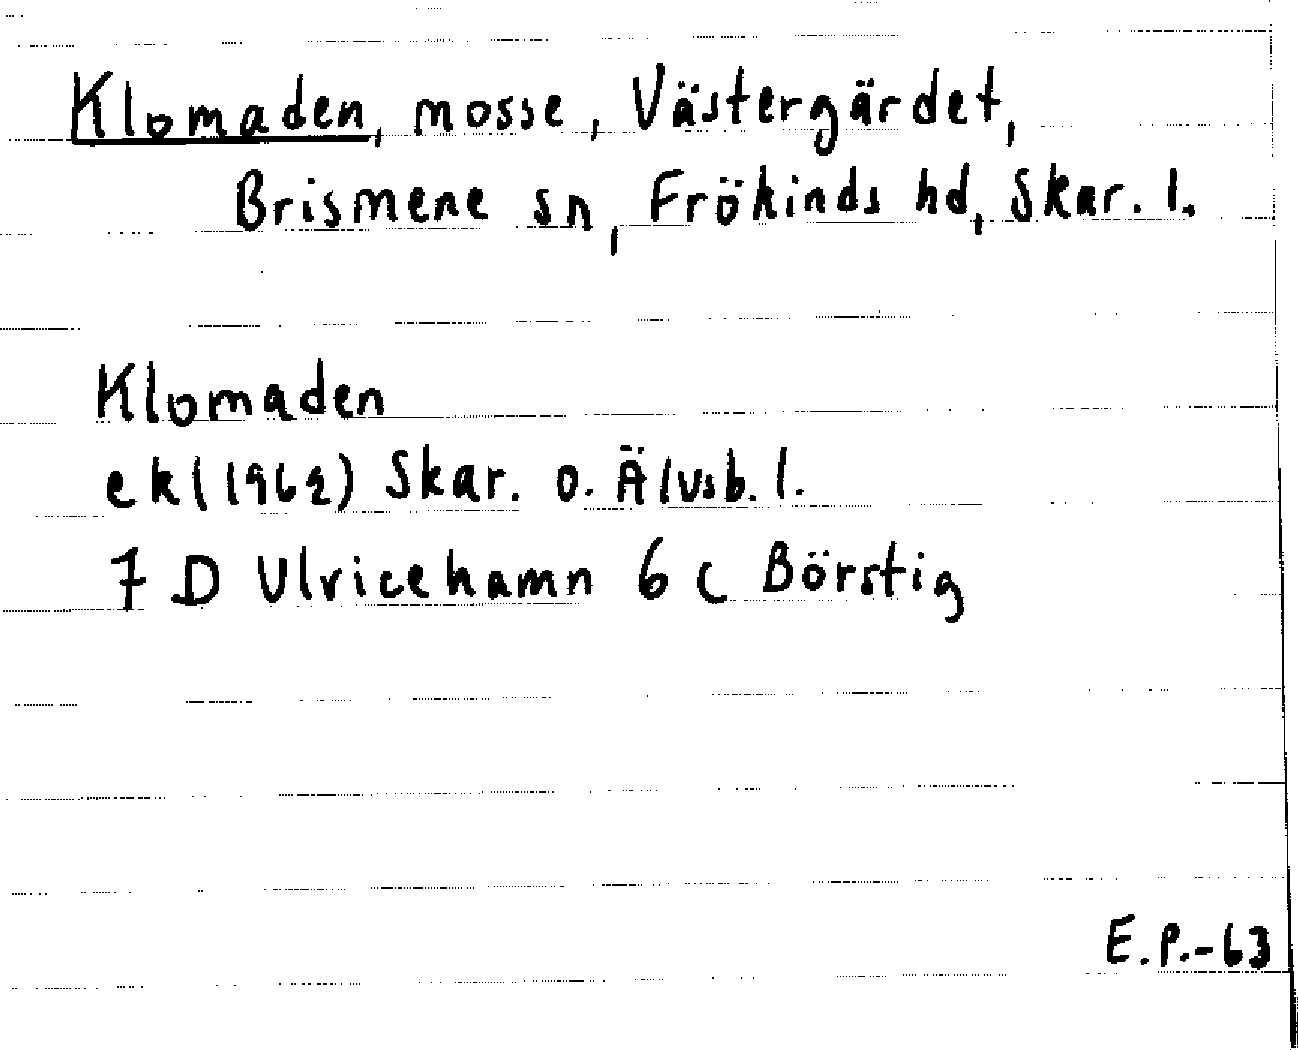 Klomaden, mosse, Västergärdet,
Brismene sn, Frökinds hd, Skar. l.
Klomaden
ek (1962) Skar. o. Älvsb. l.
7 D Ulricehamn 6 c Börstig
E.P.-63